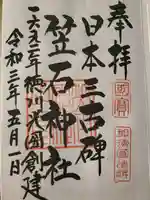 奉拝
国宝
那須国造碑
日本三古碑
笠石神社
一六九二年徳川光圀創建
令和三年五月一日